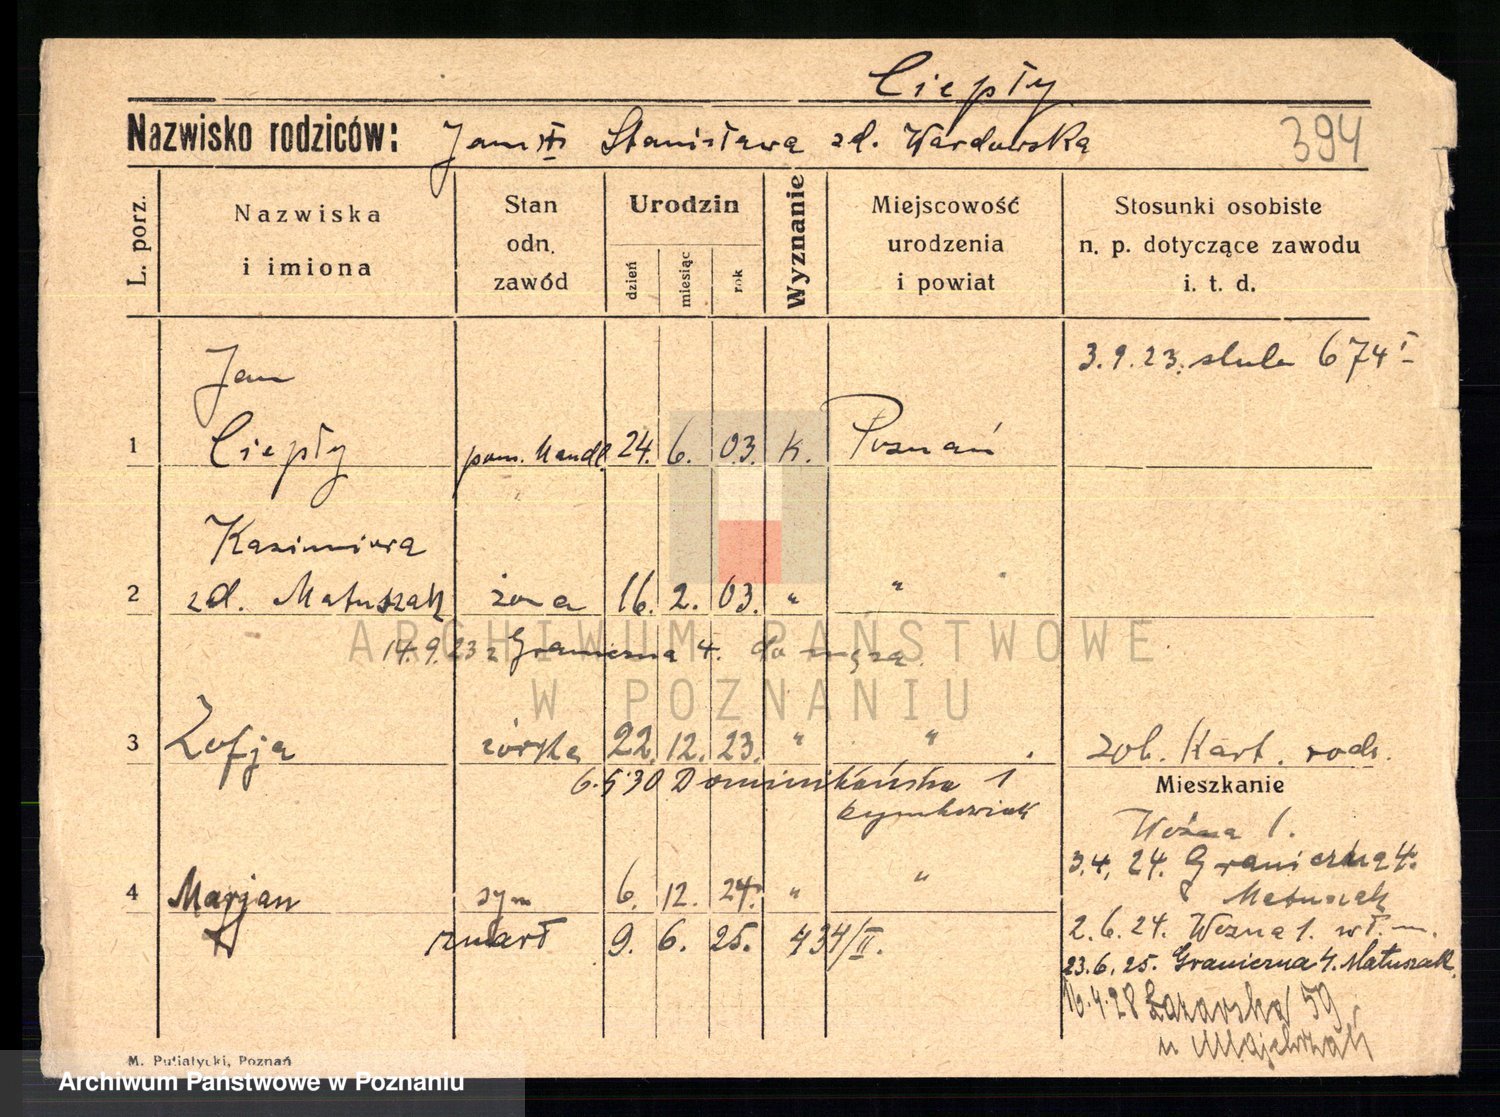 Ciepły
Nazwisko rodziców: Jan i Stanisława zd. Wardowska
394
L. porz.
Nazwiska i imiona
Stan odn. zawód
Urodzin
dzień miesiąc rok
Wyznanie
Miejscowość urodzenia i powiat
Stosunki osobiste n. p. dotyczące zawodu i. t. d.
3.9.23. ślub 674 I
Jan
1 Ciepły pom. handl. 24. 6. 03. K. Poznań
Kazimiera
2 zd. Matuszak żona 16. 2. 03. " "
14.9.23 z Graniczna 4. do męża.
3 Zofja córka 22. 12. 23. " " zob. Kart. rodz.
6.5.30 Dominikańska 1.
Mieszkanie
Woźna 1.
3.4.24. Graniczna 4.
Matuszak
4 Marjan syn 6. 12. 24. " "
zmarł 9. 6. 25. 434/II.
2.6.24. Woźna 1. wł. m.
23.6.25. Graniczna 4. Matuszak
16.4.28 Łazarska 59
u Majchrzak
M. Putiatycki, Poznań
ARCHIWUM PAŃSTWOWE
W POZNANIU
Archiwum Państwowe w Poznaniu